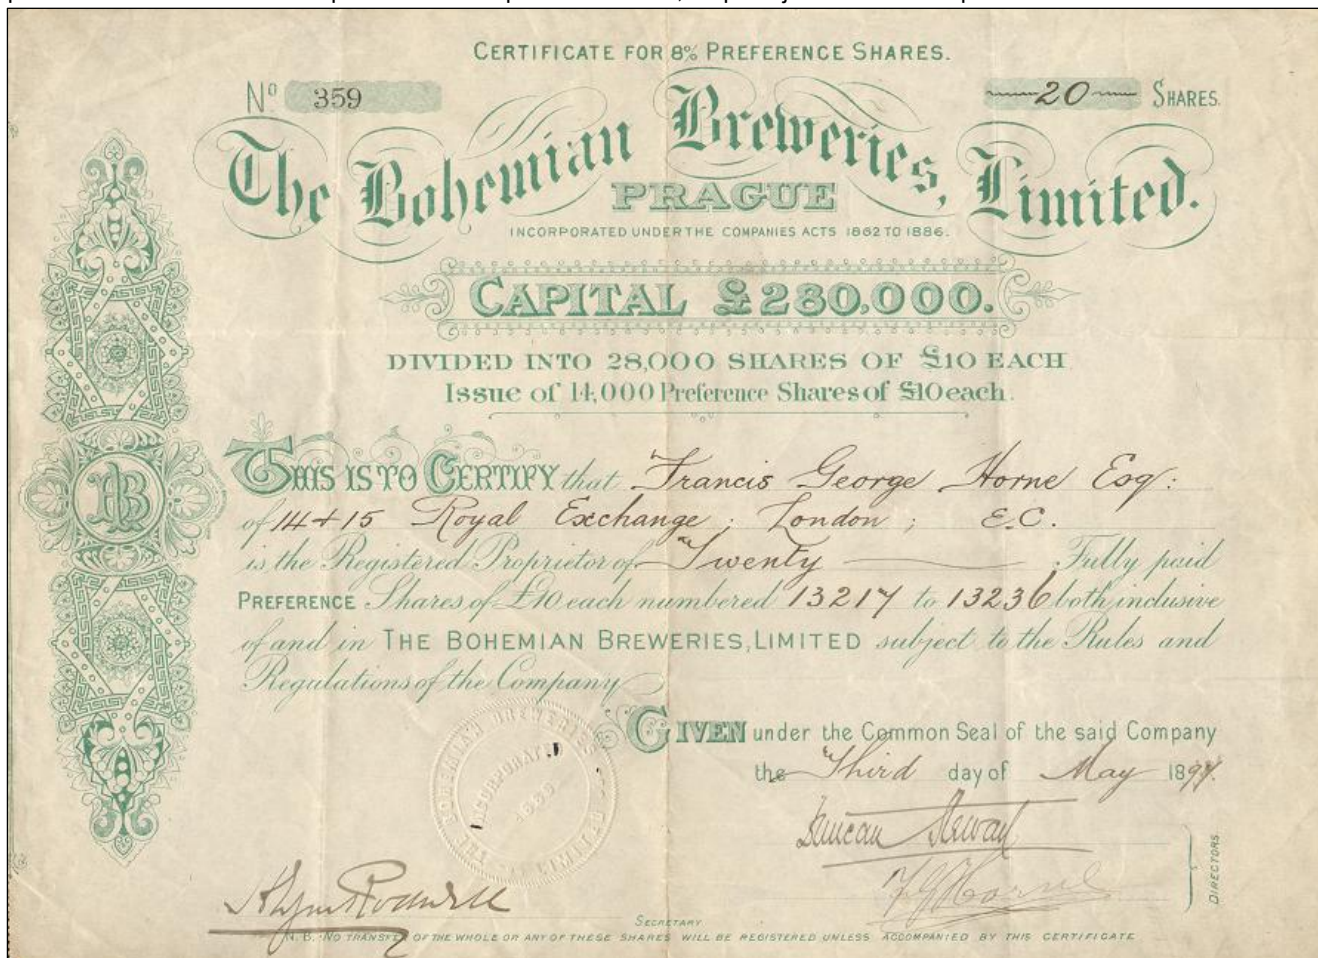 CERTIFICATE FOR 8% PREFERENCE SHARES.
No 359
20 SHARES.
The Bohemian Breweries, Limited.
PRAGUE
INCORPORATED UNDER THE COMPANIES ACTS 1862 TO 1886.
CAPITAL £280,000.
DIVIDED INTO 28,000 SHARES OF £10 EACH
Issue of 14,000 Preference Shares of £10 each.
THIS IS TO CERTIFY that Francis George Horne Esq:
of 14 + 15 Royal Exchange; London; E.C.
is the Registered Proprietor of Twenty Fully paid
PREFERENCE Shares of £10 each numbered 13217 to 13236 both inclusive
of and in THE BOHEMIAN BREWERIES, LIMITED subject to the Rules and
Regulations of the Company
GIVEN under the Common Seal of the said Company
the Third day of May 1897.
THE BOHEMIAN BREWERIES LIMITED
INCORPORATED
BB
Duncan Stewart
F G Horne
DIRECTORS
SECRETARY
N.B. NO TRANSFER OF THE WHOLE OR ANY OF THESE SHARES WILL BE REGISTERED UNLESS ACCOMPANIED BY THIS CERTIFICATE